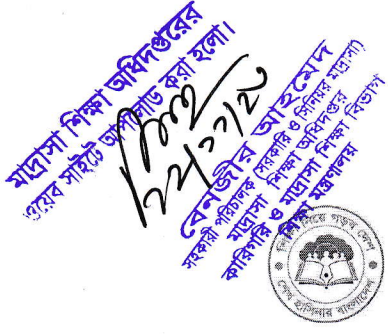 মাদ্রাসা শিক্ষা অধিদপ্তরের
ওয়েব সাইটে আপলোড করা হলো।
বেনজীর আহমেদ
সহকারী পরিচালক (সরকারি ও সিনিয়র মাদ্রাসা)
মাদ্রাসা শিক্ষা অধিদপ্তর
কারিগরি ও মাদ্রাসা শিক্ষা বিভাগ
শিক্ষা মন্ত্রণালয়
শিক্ষা নিয়ে গড়ব দেশ
শেখ হাসিনার বাংলাদেশ